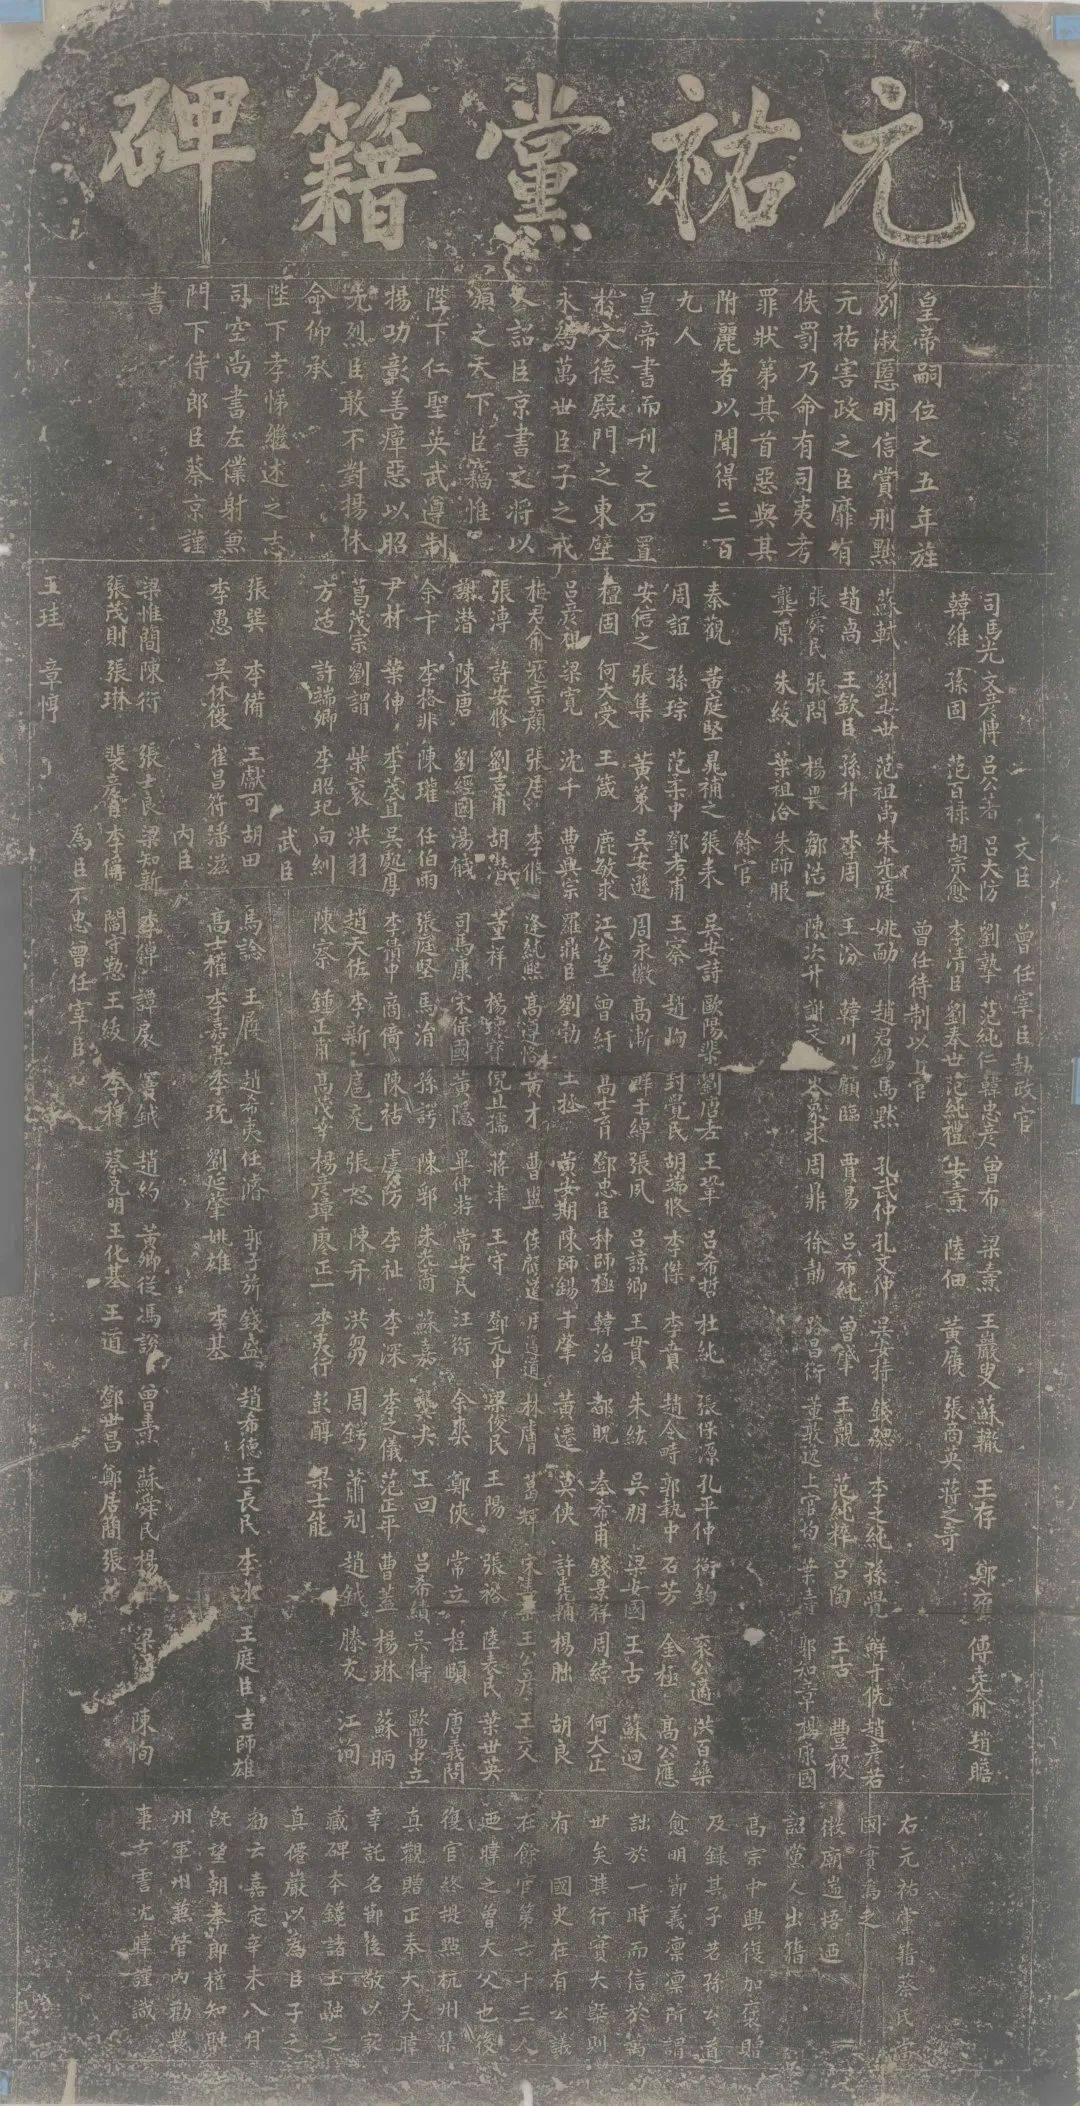 元祐黨籍碑
皇帝嗣位之五年旌
別淑慝明信賞刑黜
元祐害政之臣靡有
佚罰乃命有司夷考
罪狀第其首惡與其
附麗者以聞得三百
九人
皇帝書而刊之石置
於文德殿門之東壁
永為萬世臣子之戒
又詔臣京書之將以
頒之天下臣竊惟
陛下仁聖英武遵制
揚功彰善癉惡以昭
先烈臣敢不對揚休
命仰承
陛下孝悌繼述之志
司空尚書左僕射兼
門下侍郎臣蔡京謹
書
文臣 曾任宰臣執政官
司馬光 文彥博 呂公著 呂大防 劉摯 范純仁 韓忠彥 曾布 梁燾 王巖叟 蘇轍 王存 鄭雍 傅堯俞 趙瞻
韓維 孫固 范百祿 胡宗愈 李清臣 劉奉世 范純禮 安燾 陸佃 黃履 張商英 蔣之奇
曾任待制以上官
蘇軾 劉安世 范祖禹 朱光庭 姚勔 趙君錫 馬默 孔武仲 孔文仲 吳安持 錢勰 李之純 孫覺 鮮于侁 趙彥若
趙卨 王欽臣 孫升 李周 王汾 韓川 顧臨 賈易 呂希純 曾肇 王覿 范純粹 呂陶 王古 豐稷
張舜民 張問 楊畏 鄒浩 陳次升 謝文 岑象求 周鼎 徐勣 路昌衡 董敦逸 上官均 葉濤 郭知章 楊康國
龔原 朱紱 葉祖洽 朱師服
餘官
秦觀 黃庭堅 晁補之 張耒 吳安詩 歐陽棐 劉唐老 王鞏 呂希哲 杜純 張保源 孔平仲 衡鈞 袞公適 洪百藥
周誼 孫琮 范柔中 鄧考甫 王察 趙峋 封覺民 胡端修 李傑 李賁 趙令畤 郭執中 石芳 金極 高公應
安信之 張集 黃策 吳安遜 周永徽 高漸 鮮于綽 張夙 呂諒卿 王貫 朱紘 吳朋 梁安國 王古 蘇迥
檀固 何大受 王箴 鹿敏求 江公望 曾紆 高士育 鄧忠臣 种師極 韓治 都貺 秦希甫 錢景祥 周綍 何大正
呂彥祖 梁寬 沈千 曹興宗 羅鼎臣 劉勃 王拯 黃安期 陳師錫 于肇 黃遷 莫俠 許堯輔 楊朏 胡良
梅君俞 寇宗顏 張居 李修 逢純熙 高遵恪 黃才 曹盥 侯顧道 周遵道 林膚 葛輝 宋壽岳 王公彥 王交
張溥 許安修 劉吉甫 胡潛 董祥 楊瓌寶 倪直孺 蔣津 王守 鄧元中 梁俊民 王陽 張裕 陸表民 葉世英
謝潛 陳唐 劉經國 湯馘 司馬康 宋保國 黃隱 畢仲游 常安民 汪衍 余爽 鄭俠 常立 程頤 唐義問
余卞 李格非 陳瓘 任伯雨 張庭堅 馬涓 孫諤 陳郛 朱光裔 蘇嘉 龔夬 王回 呂希績 吳儔 歐陽中立
尹材 葉伸 李茂直 吳處厚 李積中 商倚 陳祐 虞防 李祉 李深 李之儀 范正平 曹蓋 楊琳 蘇昞
葛茂宗 劉謂 柴袞 洪羽 趙天佐 李新 扈充 張恕 陳并 洪芻 周鍔 蕭刓 趙越 滕友 江洵
方适 許端卿 李昭玘 向紃 陳察 鍾正甫 高茂華 楊彥璋 廖正一 李夷行 彭醇 梁士能
武臣
張巽 李備 王獻可 胡田 馬諗 王履 趙希夷 任濬 郭子旂 錢盛 趙希德 王長民 李永 王庭臣 吉師雄
李愚 吳休復 崔昌符 潘滋 高士權 李嘉亮 李玩 劉延肇 姚雄 李基
內臣
梁惟簡 陳衍 張士良 梁知新 李倬 譚扆 竇鉞 趙約 黃卿從 馮說 曾燾 蘇舜民 楊 梁 陳恂
張茂則 張琳 裴彥臣 李偁 閻守懃 王紱 李穆 蔡克明 王化基 王道 鄧世昌 鄭居簡 張
為臣不忠曾任宰臣
王珪 章惇
右元祐黨籍蔡氏當
國實為之
徽廟遄悟迺
詔黨人出籍
高宗中興復加褒贈
及錄其子若孫公道
愈明節義凜凜所謂
詘於一時而信於萬
世矣其行實大槩則
有 國史在有公議
在餘官第六十三人
迺暐之曾大父也後
復官終提點杭州集
真觀贈正奉大夫暐
幸託名節後敬以家
藏碑本鑱諸玉融之
真僊巖以為臣子之
勸云嘉定辛未八月
既望朝奉郎權知融
州軍州兼管內勸農
事古雩沈暐謹識